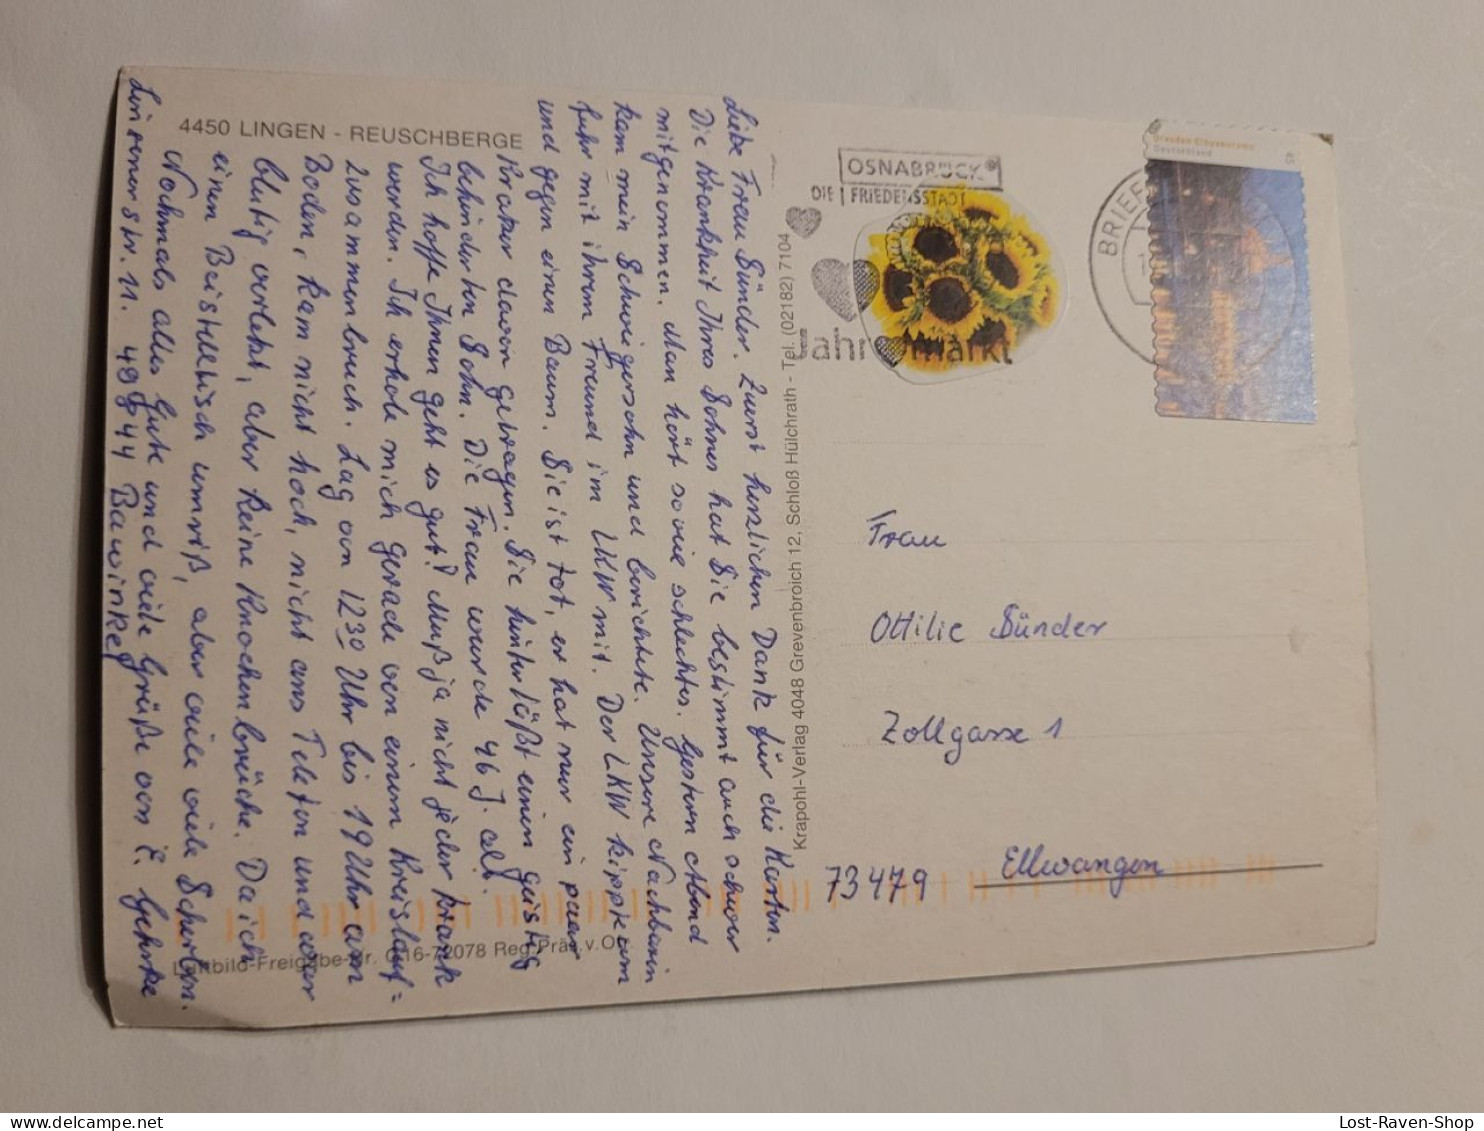 4450 LINGEN - REUSCHBERGE
Liebe Frau Sünder. Zuerst herzlichen Dank für die Karten.
Die Krankheit Ihres Sohnes hat Sie bestimmt auch schwer
mitgenommen. Man hört soviel schlechtes. Gestern Abend
kam mein Schwiegersohn und berichtete. Unsere Nachbarin
fuhr mit ihrem Freund im LKW mit. Der LKW kippte um
und gegen einen Baum. Sie ist tot, er hat nur ein paar
Kratzer davon getragen. Sie hinterläßt einen geistig
behinderten Sohn. Die Frau wurde 46 J. alt.
Ich hoffe Ihnen geht es gut? Muß ja nicht jeder krank
werden. Ich erhole mich gerade von einem Kreislauf=
zusammenbruch. Lag von 12³⁰ Uhr bis 19 Uhr am
Boden, kam nicht hoch, nicht ans Telefon und war
blutig verletzt, aber keine Knochenbrüche. Da ich
einen Beistelltisch umriß, aber viele viele Scherben.
Nochmals alles Gute und viele Grüße von E. Gehrke
49844 Bawinkel
Luftbild-Freigabe-Nr. Reg.Präs.v.
Krapohl-Verlag 4048 Grevenbroich 12, Schloß Hülchrath - Tel. (02182) 7104
OSNABRÜCK®
DIE | FRIEDENSSTADT
Jahrmarkt
BRIEF
Dresden Elbpanorama
Deutschland
45
Frau
Ottilie Sünder
Zollgasse 1
73479 Ellwangen
Lost-Raven-Shop